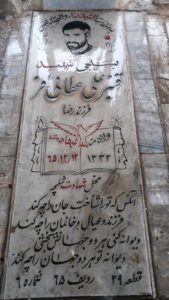 بسیجی شهید
قنبر علی عطائی فر
فرزند رضا
ولادت
شهادت
۱۳۳۲
۶۵/۱۲/۱۲
محل شهادت شلمچه
آنکس که تو را شناخت جان را چه کند
فرزند و عیال و خانمان را چه کند
دیوانه کنی هر دو جهانش بخشی
دیوانه تو هر دو جهان را چه کند
قطعه ۲۹ ردیف ۶۵ شماره ۶